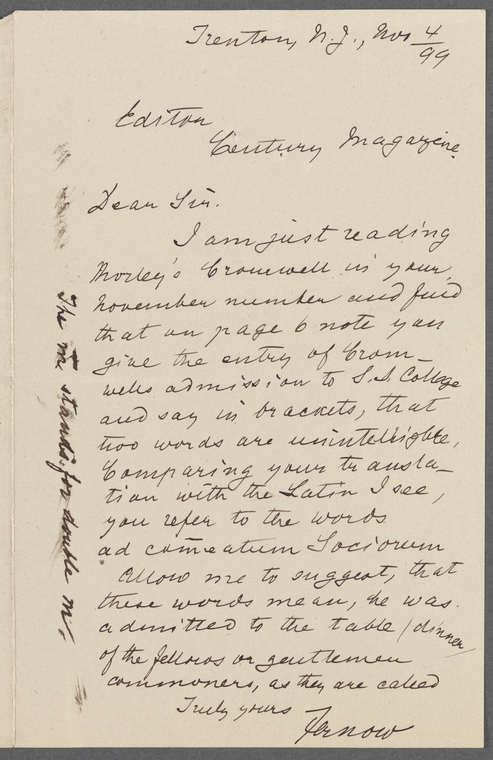 Trenton, N.J., Nov 4/99
Editor
Century Magazine.
Dear Sir.
I am just reading
Morley's Cromwell in your
November number and find
that on page 6 note you
give the entry of Crom-
wells admission to S.S. College
and say in brackets, that
two words are unintelligible,
Comparing your transla-
tion with the Latin I see,
you refer to the words
ad com̄eatum Sociorum
Allow me to suggest, that
these words mean, he was
admitted to the table (dinner)
of the fellows or gentlemen
commoners, as they are called
Truly yours
Fernow
The m̄ stands for double m.